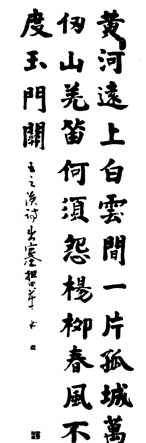 黃河遠上白雲間一片孤城萬
仞山羌笛何須怨楊柳春風不
度玉門關
王之渙詩出塞